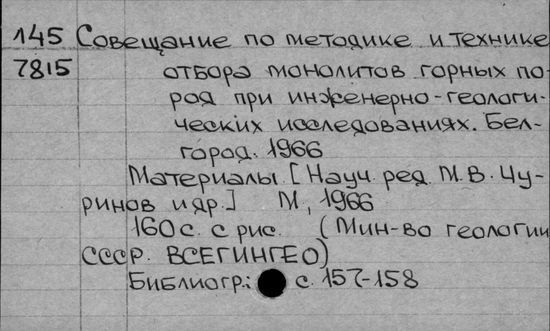 145 Совещание по методике и технике
7815 отбора монолитов горных по-
род при инженерно-геологи-
ческих исследованиях. Бел-
город. 1966
Материалы. [Науч. ред. М.В. Чу-
ринов и др.] М., 1966
160 с. с рис. (Мин-во геологии
СССР. ВСЕГИНГЕО)
Библиогр.: с. 157-158